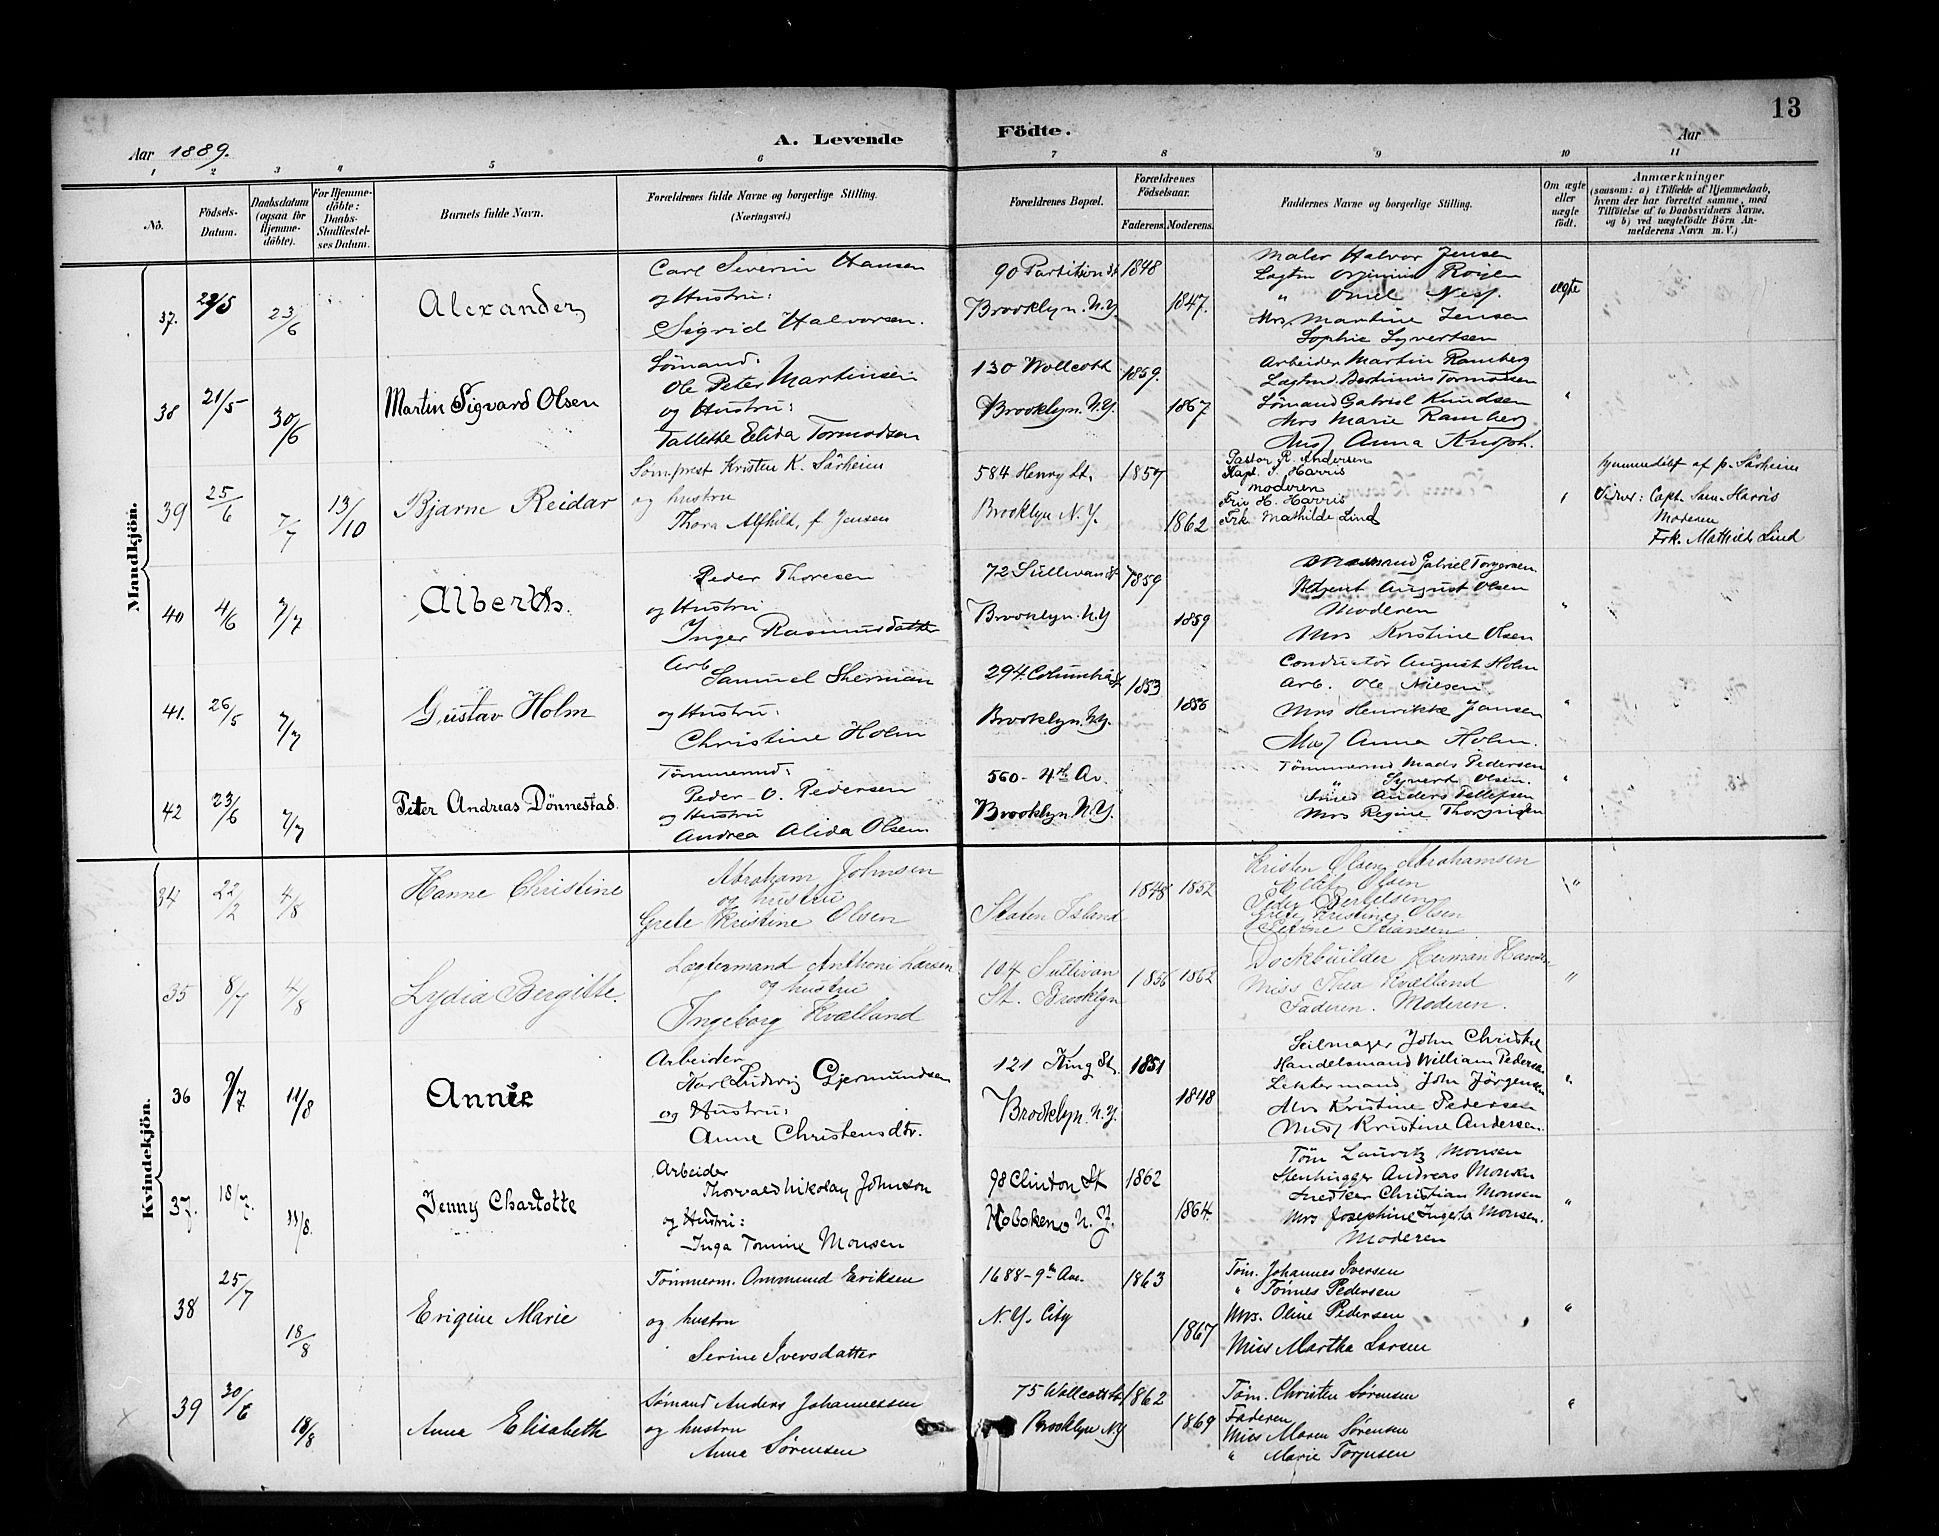 13
Aar 1889.
A. Levende
Födte.
Aar
1 2 3 4 5 6 7 8 9 10 11
No.
Födsels-Datum.
Daabsdatum (ogsaa for Hjemme-döbte).
For Hjemme-döbte: Daabs-Stadfæstel-ses Datum.
Barnets fulde Navn.
Forældrenes fulde Navne og borgerlige Stilling. (Næringsvei.)
Forældrenes Bopæl.
Forældrenes Födselsaar.
Faderens. Moderens.
Faddernes Navne og borgerlige Stilling.
Om ægte eller uægte födt.
Anmærkninger
(saasom: a) i Tilfælde af Hjemmedaab, hvem der har forrettet samme, med Tilföielse af to Daabsvidners Navne, og b) ved uægtefödte Börn An-melderens Navn m. V.)
Mandkjön.
37. 23/6
Alexander
Carl Severin Hansen
og Hustru:
Sigrid Halvorsen.
90 Partition St
Brooklyn. N.Y.
1848
1847.
Maler Halvor Jensen
Mrs. Martine Jensen
Sophie Syvertsen
ægte
38 21/5 30/6
Martin Sigvard Olsen
Sömand:
Ole Peter Martinsen
og Hustru:
Tallette Elida Tormodsen
130 Wollcott
Brooklyn. N.Y.
1859.
1867
Arbeider Martin Ramberg
Sömand Gabriel Knudsen
Mrs Marie Ramberg
Anna Knoph.
"
39 25/6 7/7 13/10
Bjarne Reidar
Sömprest Kristen K. Särheim
og hustru
Thora Alfhild, f. Jensen
584 Henry St.
Brooklyn N.Y.
1857
1862
Pastor R. Andersen
Kapt. S. Harris
Moderen
Fru H. Harris
Frk. Mathilde Lind
"
hjemmedöbt af p. Särheim
Vidner: Capt. Sam. Harris
Moderen
Frk. Mathilde Lind
40 4/6 7/7
Albert
Peder Thoresen
og Hustru
Inger Rasmusdatter
72 Sullivan St
Brooklyn. N.Y
1859
1859
Gabriel Torgersen
August Olsen
Moderen
Mrs Kristine Olsen
"
41. 26/5 7/7
Gustav Holm
Arb
Samuel Sherman
og Hustru:
Christine Holm
294. Columbia St
Brooklyn. N.Y.
1853
Conductor August Holm
Arb. Ole Nilsen
Mrs Henrikke Jansen
Anna Holm.
"
42 23/6 7/7
Peter Andreas Dönnestad.
Tömmermd:
Peder O. Pedersen
og Hustru
Andrea Alida Olsen
560 - 4th Av.
Brooklyn. N.Y.
Tömmermd Mads Pedersen
" Syvert Olsen.
Smed Anders Tellefsen
Mrs Regine
"
Kvindekjön.
34 22/2 4/8
Hanne Christine
Abraham Johnsen
og hustru
Grete Kristine Olsen
Staten Island
1848 1852
Kristen Olsen Abrahamsen
Olsen
Peder Bertelsen
Grete Kristine Olsen
"
35 8/7 4/8
Lydia Bergitte.
Lægtermand Anthoni Larsen
og hustru
Ingeborg Kvælland
104 Sullivan
St. Brooklyn
1856 1862
Dockbuilder Herman Hansen
Miss Thea Kvælland
Faderen. Moderen.
"
36 9/7 11/8
Annie
Arbeider
Karl Ludvig Gjermundsen
og Hustru:
Anne Christensdtr.
121 King St.
Brooklyn. N.Y.
1851
1848
Seilmager John Christie
Handelsmand William Pedersen
Lektermand John Jörgensen
Mrs Kristine Pedersen
Kristine Andersen.
"
37. 18/7 11/8.
Jenny Charlotte
Arbeider
Thorvald Nikolay Johnson
og Hustru:
Inga Tomine Monsen
98 Clinton St
Hoboken N.J.
1862
1864.
Töm Lauritz Monsen
Stenhugger Andreas Monsen
Snedker Christian Monsen
Mrs Josephine Ingerta Monsen.
Moderen
"
38 25/7 18/8
Erigine Marie
Tömmerm. Ommund Eriksen
og hustru
Serine Iversdatter
1688 - 9th Ave.
N.Y. City
1863
1867
Töm. Johannes Iversen
" Tönnes Pedersen
Mrs. Oline Pedersen
Miss Martha Larsen
"
39 30/6 18/8
Anna Elisabeth
Sömand Anders Johannessen
og hustru
Anna Sörensen
75 Wollcott St
Brooklyn N.Y
1862
1869
Töm. Christen Sörensen
Faderen
Miss Maren Sörensen
" Marie Torjusen
"